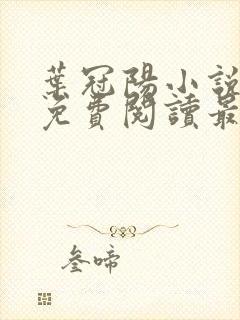 葉冠陽小說
免費閱讀最
叁啼